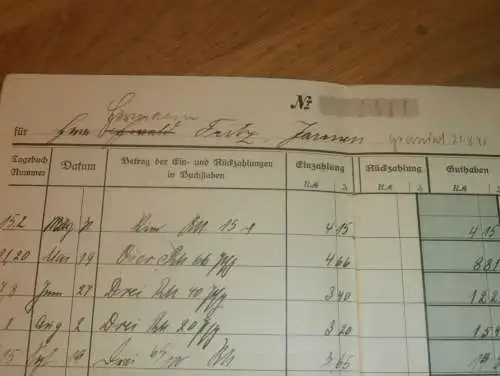 Nr
für Herrn Fritz, Jarmen
Tagebuch Nummer Datum Betrag der Ein- und Rückzahlungen in Buchstaben Einzahlung Rückzahlung Guthaben
RM ₰ RM ₰ RM ₰
152 März 31 Vier RM 15 4 15 4 15
20 Mai 19 Vier RM 66 Pfg 4 66 8 81
Juni 27 Drei RM 40 Pfg 3 40 12 2
1 Aug 2 Drei RM 20 Pfg 3 20 15 4
15 19 Drei 65/100 RM 3 65